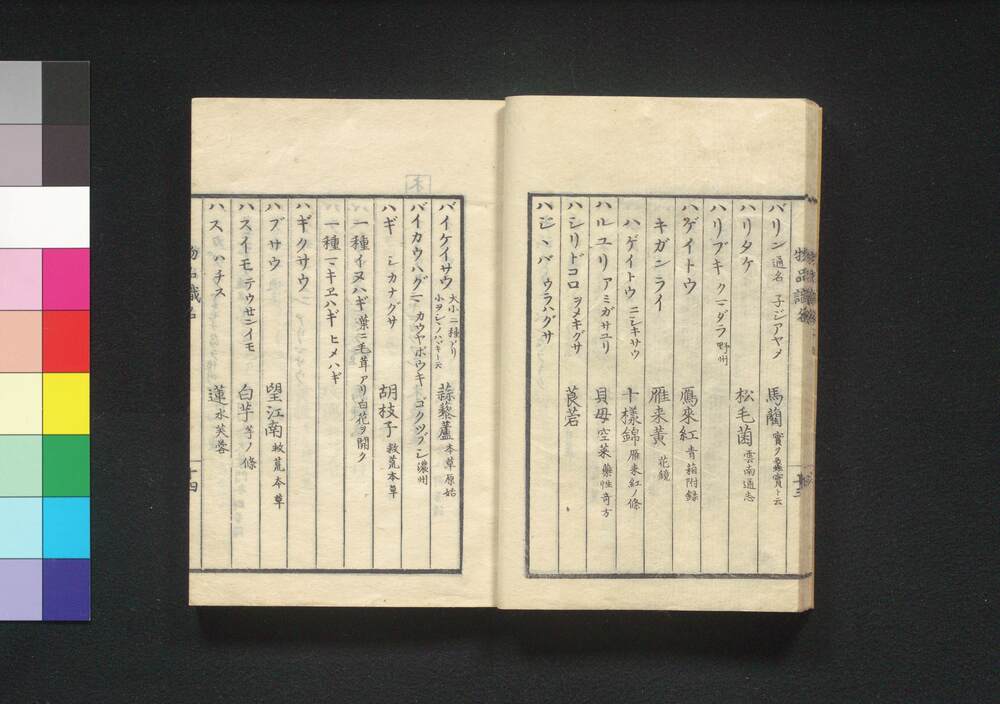 バリン 通名 子ジアヤメ 馬藺 實ヲ蠡實ト云
ハリタケ 松毛菌 雲南通志
ハリブキ クマダラ 野州
ハゲイトウ 鴈來紅 青葙附録
キガンライ 雁来黄 花鏡
ハゲイトウ ニシキサウ 十様錦 雁来紅ノ條
ハルユリ アミガサユリ 貝母 空菜 藥性奇方
ハシリドコロ ヲメキグサ 莨菪
ウラハグサ
バイケイサウ 大小二種アリ 蒜藜蘆 本草原始
バイカウハグマ カウヤボウキ 濃州
ハギ シカナグサ 胡枝子 救荒本草
一種イヌハギ 葉ニ毛茸アリ白花ヲ開ク
一種マキヱハギ ヒメハギ
ハギクサウ
ハブサウ 望江南 救荒本草
ハスイモ テウセンイモ 白芋 芋ノ條
ハス ハチス 蓮 水芙蓉
十四